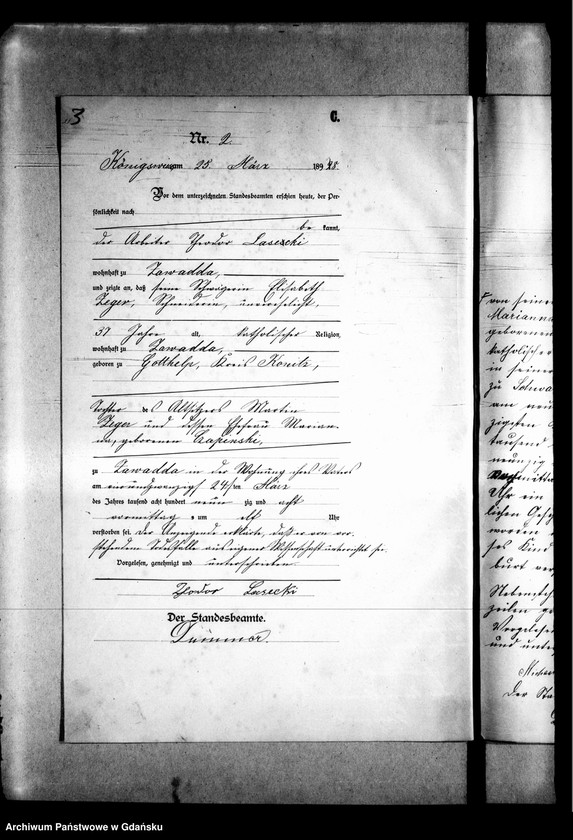 3
C.
Nr. 2.
am 25 März 1898.
Vor dem unterzeichneten Standesbeamten erschien heute, der Per-
sönlichkeit nach
be kannt,
der Arbeiter Theodor Lasecki
wohnhaft zu Zawadda,
und zeigte an, daß seine Schwägerin Elisabeth
Zeger, Schneiderin, unverehelicht,
37 Jahre alt, katholischer Religion,
wohnhaft zu Zawadda,
geboren zu Gotthelp, Kreis Konitz,
Tochter des Altsitzers Martin
Zeger und dessen Ehefrau Marian-
na, geborenen
zu Zawadda in der Wohnung ihres Vaters
am vierundzwanzigsten März
des Jahres tausend acht hundert neun zig und acht
vormittags um elf Uhr
verstorben sei. Der Anzeigende erklärte, daß er von vor-
stehendem Todesfalle aus eigener Wissenschaft unterrichtet sei.
Vorgelesen, genehmigt und unterschrieben.
Theodor Lasecki
Der Standesbeamte.
von seiner
Marianna
geborenen
katholischer
in seiner
zu
am neun
zigsten
tausend
neunzig
Uhr ein
lichen Gesch
worden
ses Kind
Vorgelesen
und unter
Der Sta
Archiwum Państwowe w Gdańsku